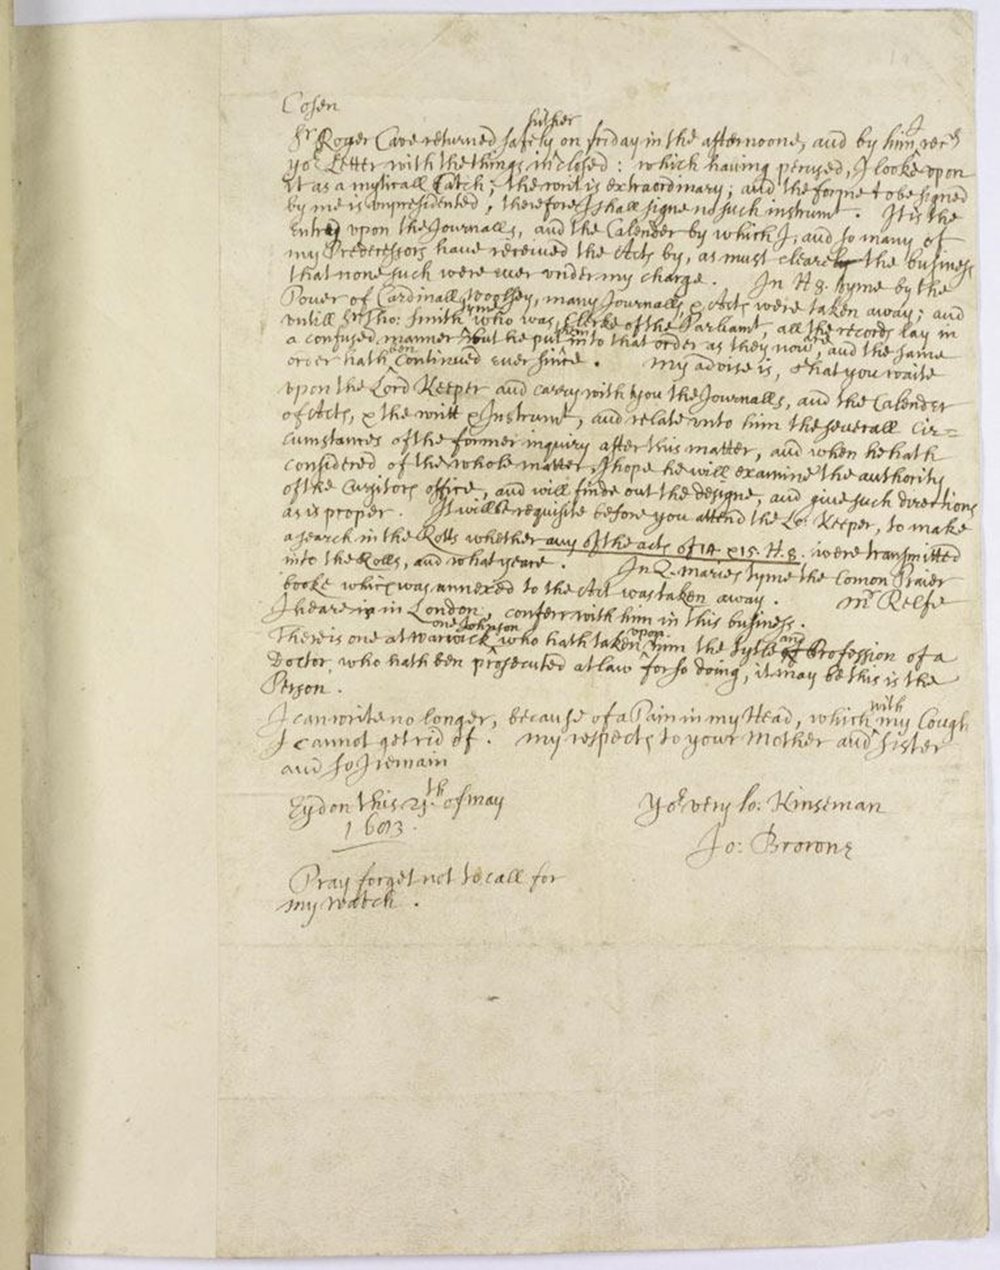 Cosen
Sr Roger Cave returned safely hither on friday in the afternoone, and by him I recd
yor Letter with the things inclosed: which having perused, I looke upon
it as a mysticall Catch; the writt is extraordinary; and the forme to be signed
by me is unpresidented, therefore I shall signe no such instrumt. It is the
Entred upon the Journalls, and the Calender by which I, and so many of
my Predecessors have received the Acts by, as must cleare the business
that none such were ever under my charge. In H 8. tyme by the
Power of Cardinall Woolsey, many Journalls, & Acts were taken away; and
untill Sr Tho: Smith tyme who was Clerke of the Parliamt, all the records lay in
a confused manner but he put them into that order as they now are, and the same
order hath ben continued ever since. My advise is, that you waite
upon the Lord Keeper and carry with you the Journalls, and the Calender
of Acts, & the writt & Instrumt, and relate unto him the severall Cir=
cumstances of the former inquiry after this matter, and when he hath
considered of the whole matter, I hope he will examine the authority
of the Cursitors office, and will finde out the designe, and give such directions
as is proper. It wilbe requisite before you attend the Lo: Keeper, to make
a search in the Rolls whether any of the acts of 14 & 15. H. 8. were transmitted
into the Rolls, and what yeare. In Q. Maries tyme the Comon Praier
booke which was annexed to the Act was taken away. Mr Relfe
I heare is in London, conferr with him in this business.
There is one at Warwick one Johnson who hath taken upon him the tytle and Profession of a
Doctor, who hath ben prosecuted at law for so doing, it may be this is the
Person.
I can write no longer, because of a Pain in my Head, which with my Cough
I cannot get rid of. My respects to your Mother and Sister
and so I remain
Eydon this 29th of May
Yor very lo. Kinseman
Jo: Browne
Pray forget not to call for
my watch.